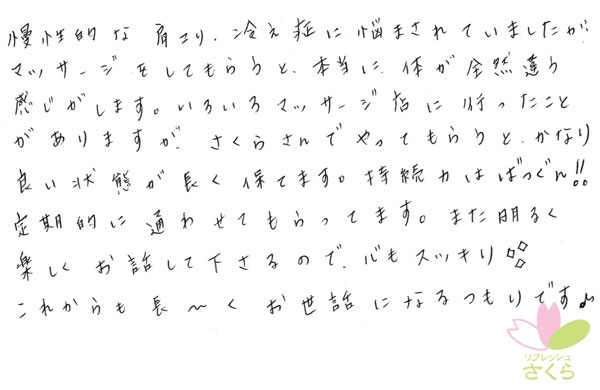 慢性的な肩こり、冷え症に悩まされていましたが、
マッサージをしてもらうと、本当に体が全然違う
感じがします。いろいろマッサージ店に行ったこと
がありますが、さくらさんでやってもらうと、かなり
良い状態が長く保てます。持続力はばつぐん!!
定期的に通わせてもらってます。また明るく
楽しくお話して下さるので、心もスッキリ
これからも長〜くお世話になるつもりです♪
リフレッシュ
さくら